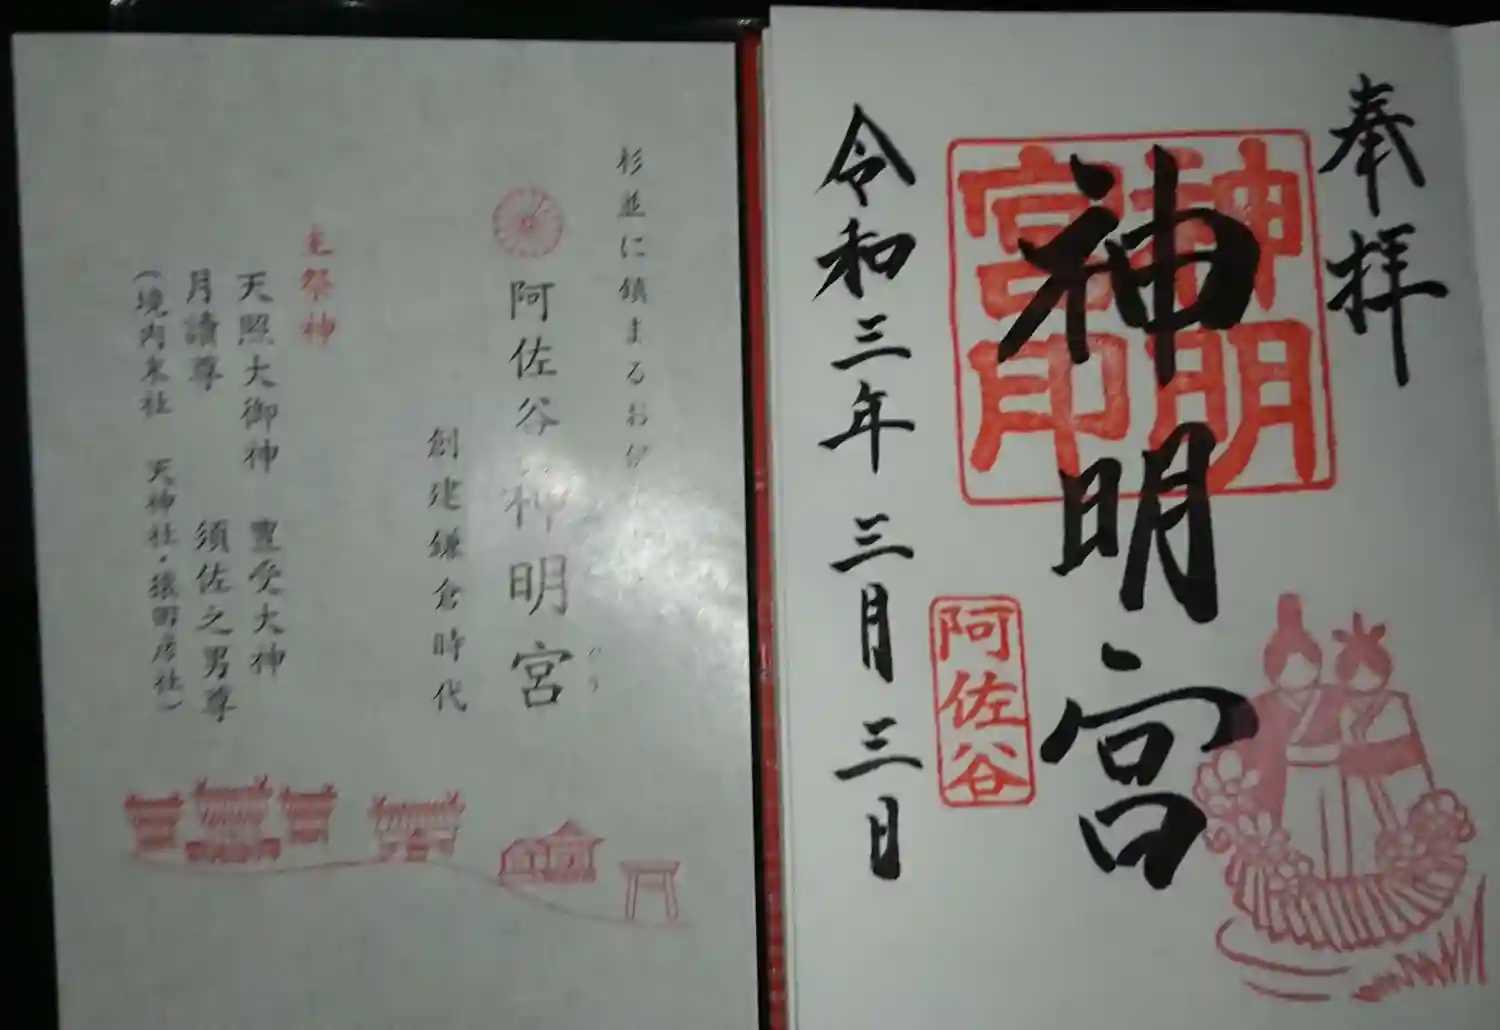 奉拝
神明宮
神明
宮印
阿佐谷
令和三年三月三日
杉並に鎮まるお伊
阿佐谷神明宮
創建鎌倉時代
主祭神
天照大御神 豊受大神
月讀尊 須佐之男尊
(境内末社 天神社・猿田彦社)